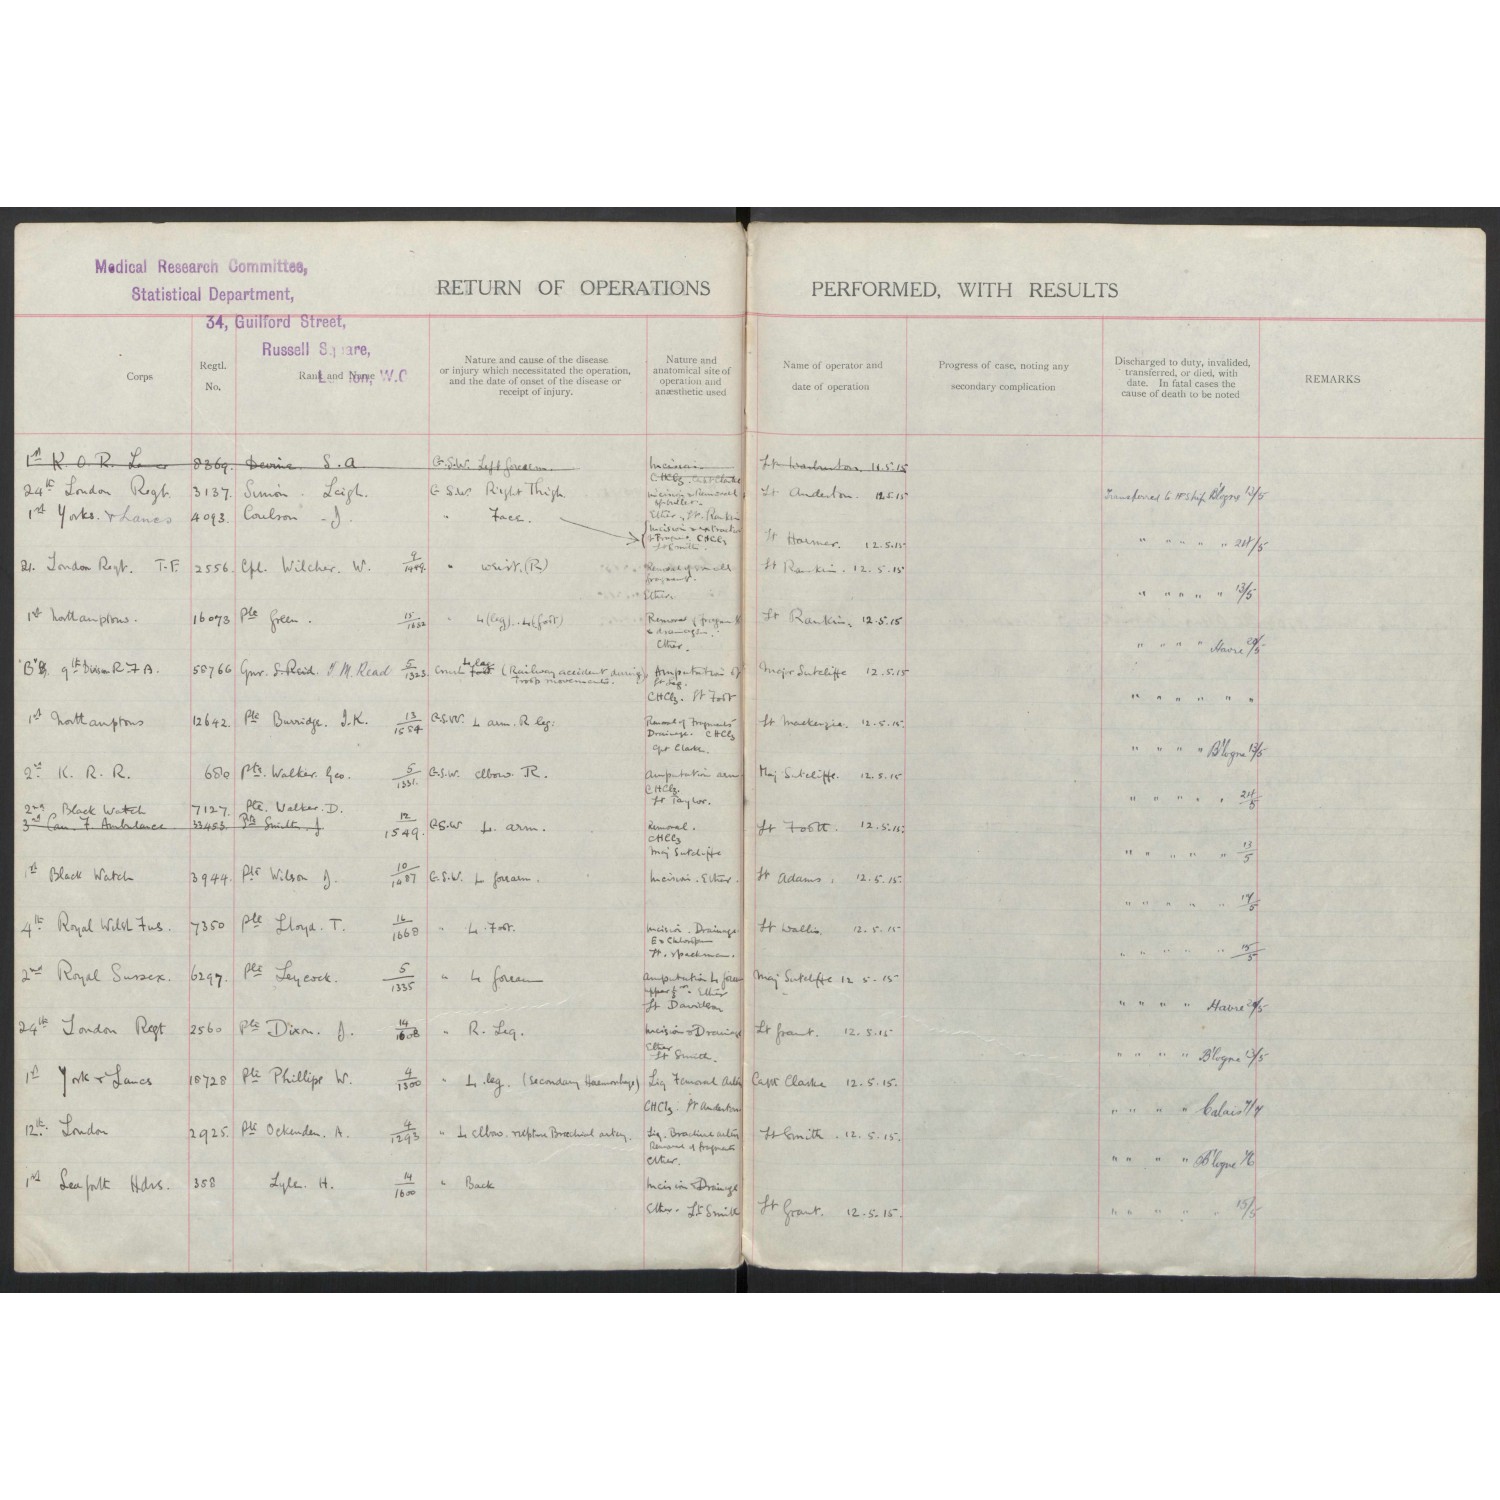 Medical Research Committee,
Statistical Department,
34, Guilford Street,
Russell Square,
W.C
RETURN OF OPERATIONS PERFORMED, WITH RESULTS
Corps
Regtl. No.
Rank and Name
Nature and cause of the disease or injury which necessitated the operation, and the date of onset of the disease or receipt of injury.
Nature and anatomical site of operation and anæsthetic used
Name of operator and date of operation
Progress of case, noting any secondary complication
Discharged to duty, invalided, transferred, or died, with date. In fatal cases the cause of death to be noted
REMARKS
1st K. O. R. Lanc 8369. Devine S. A G.S.W. Left forearm Incision CHCl3 Capt Clarke Lt Warburton 11.5.15
24th London Regt. 3137. Simon Leigh. G.S.W. Right Thigh Incision & Removal of bullet. Ether, Lt. Rankin Lt Anderton. 12.5.15 Transferred to H Ship B'logne 13/5
1st Yorks. & Lancs 4093. Coulson J. " Face. Incision & extraction CHCl3 Lt Smith. Lt Harmer. 12.5.15 " " " " " 21/5
21. London Regt. T.F. 2556. Cpl. Wilcher. W. 9/1449. " wrist. (R) Removal of small fragment. Ether. Lt Rankin. 12.5.15 " " " " " 13/5
1st Northamptons. 16073 Pte Green. 15/1652 " L (leg). L (foot) Removal of fragm & drainage. Ether. Lt Rankin. 12.5.15 " " " " Havre 20/5
"B" 9th Divison R F A. 58766 Gnr. S. Reid. M. Read 5/1323. Crush Lt leg Foot (Railway accident during Troop movements. Amputation of Lt leg. CHCl3. Lt Foot Major Sutcliffe 12.5.15 " " " " " "
1st Northamptons 12642. Pte Burridge. J.K. 13/1554 G.S.W. L arm. R leg. Removal of Fragments Drainage. CHCl3 Capt Clarke. Lt Mackenzie. 12.5.15. " " " " B'logne 13/5
2nd K. R. R. 680 Pte. Walker. Geo. 5/1331. G.S.W. elbow R. Amputation arm CHCl3. Lt Taylor. Maj Sutcliffe. 12.5.15 " " " " " 21/5
2nd Black Watch 7127. Pte. Walker. D.
3rd Cav. F. Ambulance 33453 Pte Smith J 12/1549. G.S.W L. arm. Removal. CHCl3 Maj Sutcliffe Lt Foott. 12.5.15. " " " " " 13/5
1st Black Watch 3944. Pte Wilson J. 10/1487 G.S.W. L forearm. Incision. Ether. Lt Adams. 12.5.15. " " " " " 14/5
4th Royal Welsh Fus. 7350 Pte Lloyd. T. 16/1668 " L. Foot. Incision. Drainage Lt Wallis. 12.5.15 " " " " " 15/5
2nd Royal Sussex. 6297. Pte Leycock. 5/1335 " L forearm Amputation L forearm upper Ether Lt Davidson Maj Sutcliffe 12 5.15 " " " " Havre 20/5
24th London Regt 2560 Pte Dixon. J. 14/1608 " R. Leg. Incision & Drainage Ether Lt Smith. Lt Grant. 12.5.15 " " " " B'logne 13/5
1st York & Lancs 18728 Pte Phillips W. 4/1300 " L. leg. (Secondary Haemorrhage) Lig Femoral Artery CHCl3. Lt Anderton Capt Clarke 12.5.15. " " " " Calais 7/7
12th London 2925. Pte Ockenden. A. 4/1293 " L elbow. rupture Brachial artery. Lig. Brachial artery Removal of fragments Ether. Lt Smith. 12.5.15. " " " " B'logne
1st Seaforth Hdrs. 358 Lyle. H. 14/1600 " Back Incision Drainage Ether. Lt Smith Lt Grant. 12.5.15. " " " " " 15/5